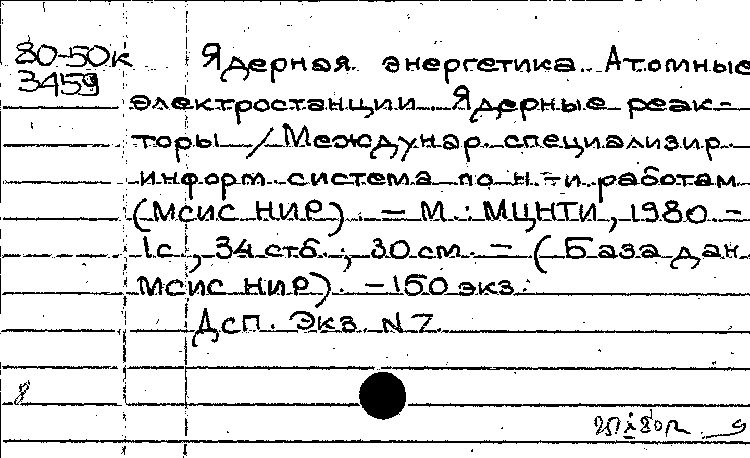 80-50к
3459
Ядерная энергетика. Атомные
электростанции. Ядерные реак-
торы / Междунар. специализир.
информ. система по н.-и. работам
(МСИС НИР). - М.: МЦНТИ, 1980 -
1с., 34 стб.; 30 см. - (База дан.
МСИС НИР). - 150 экз.
Дсп. Экз. N 7.
8